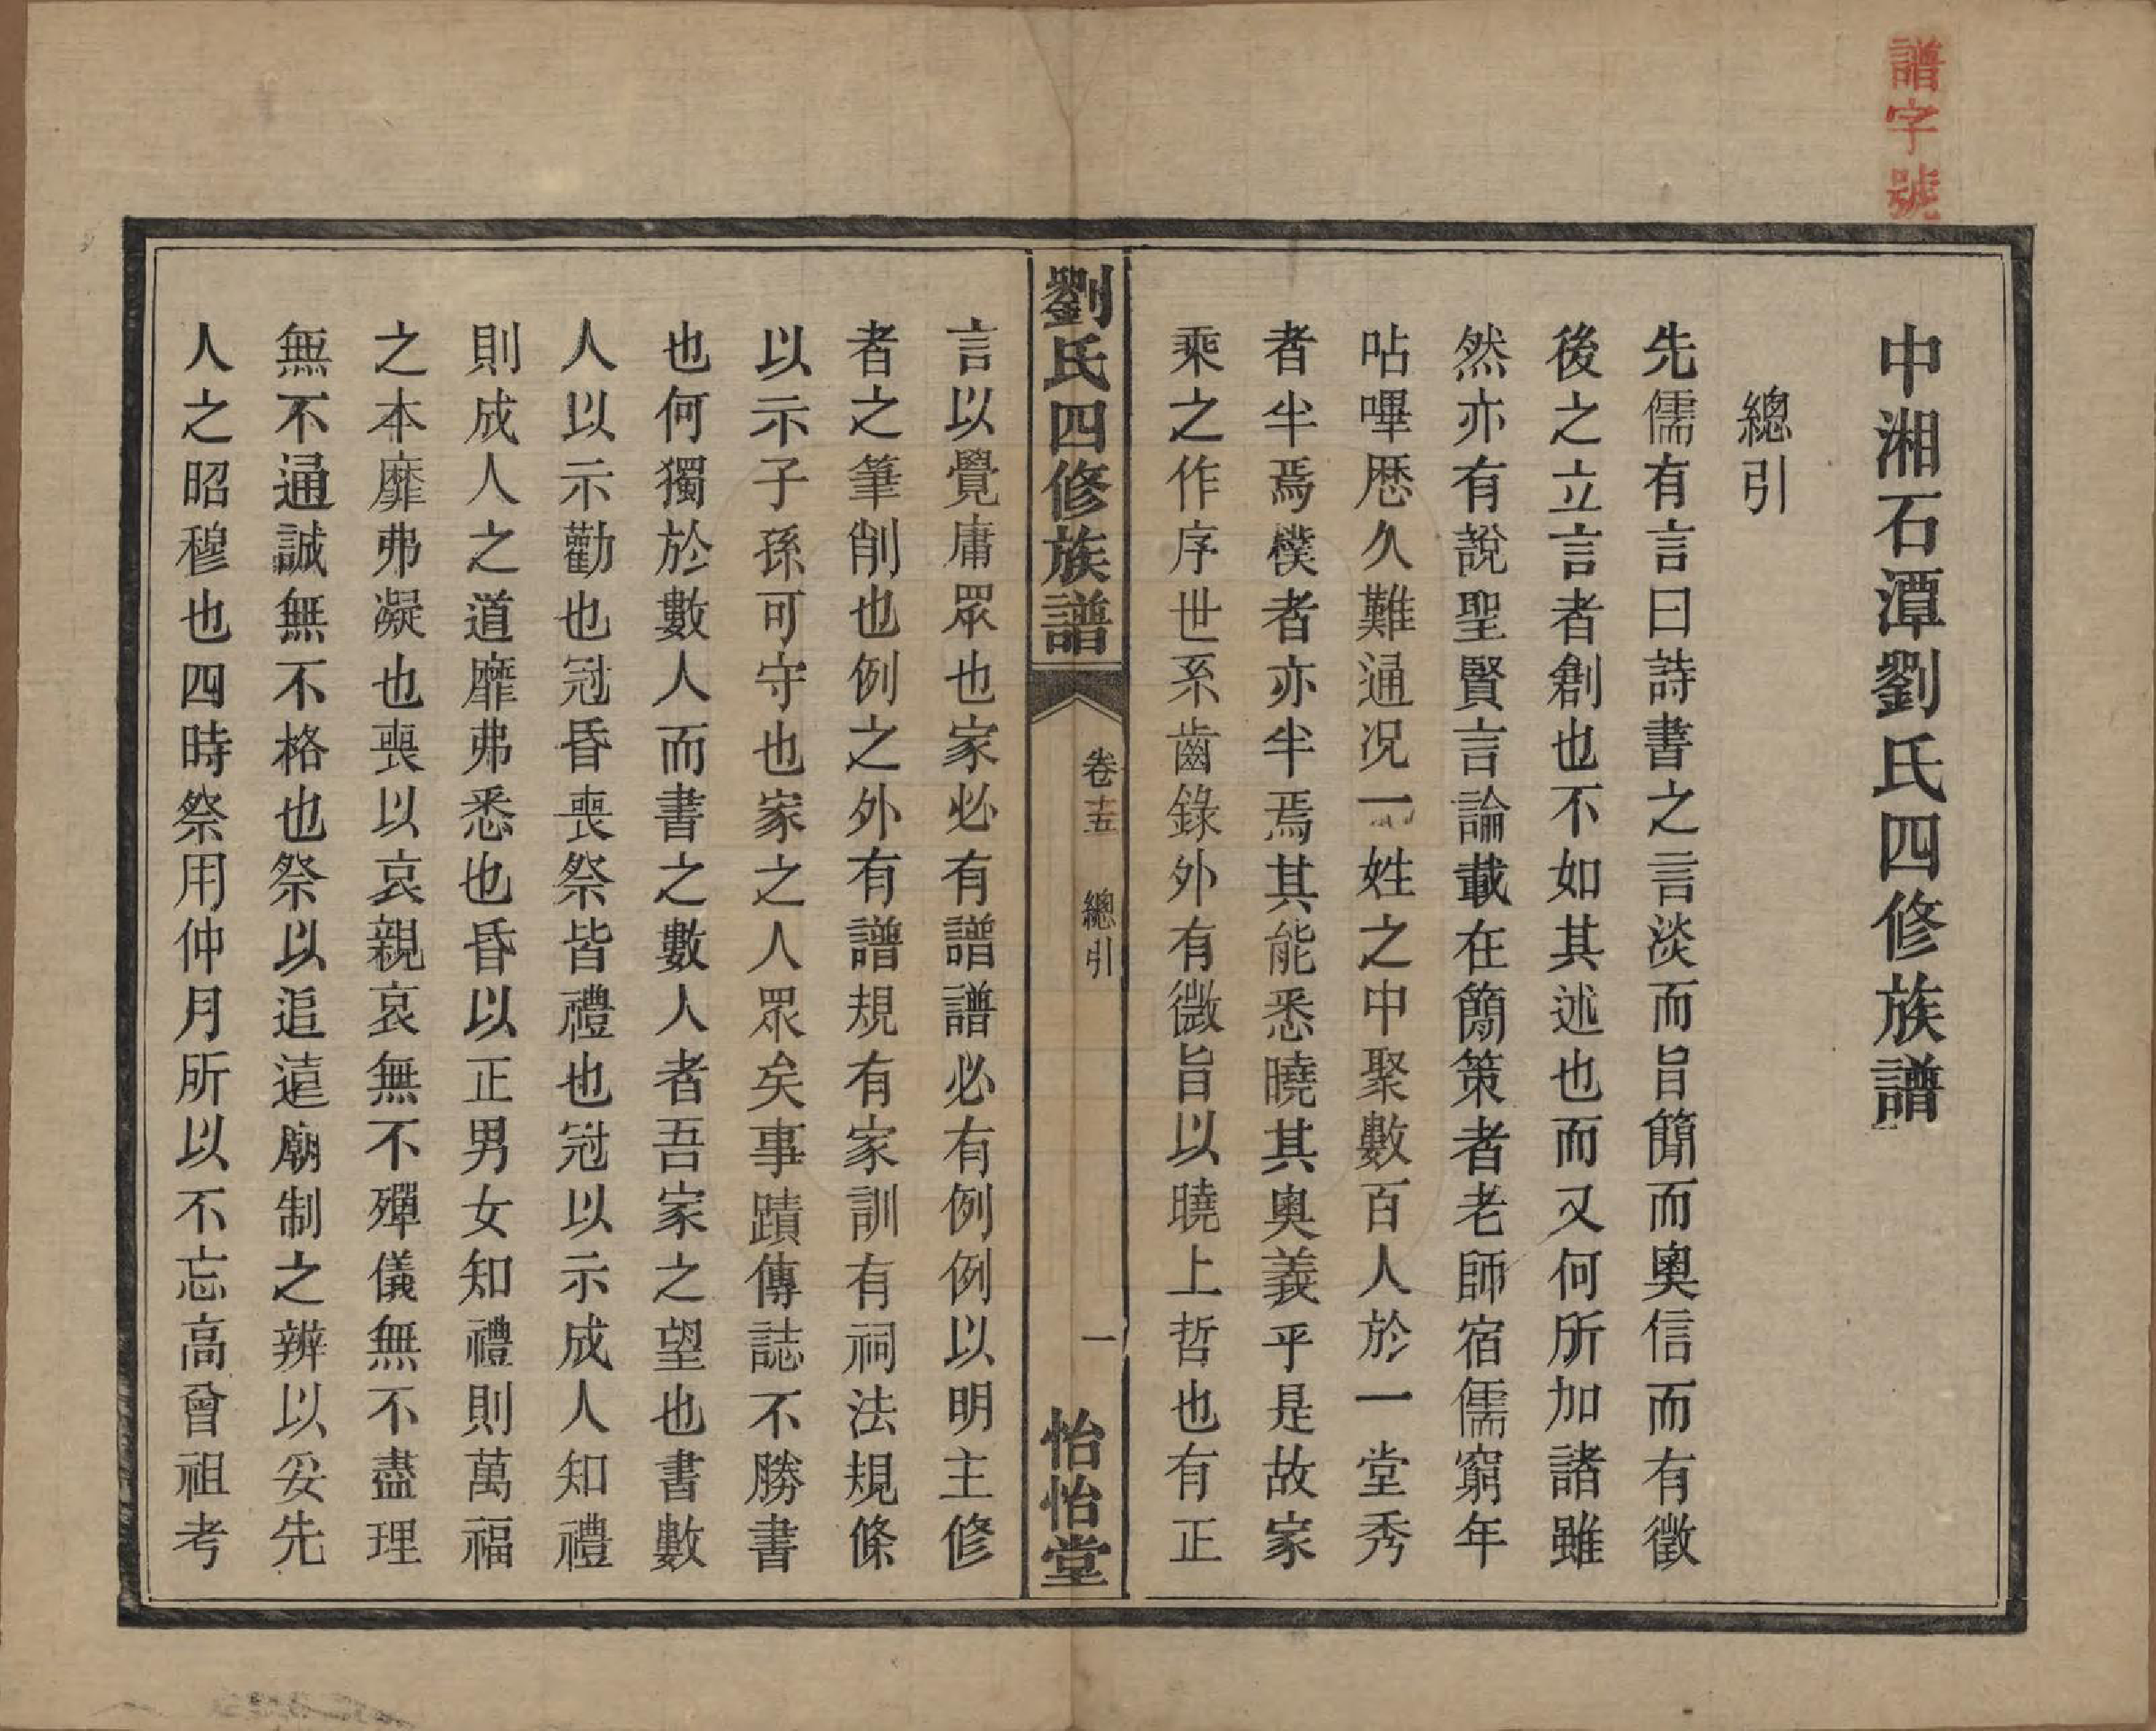 譜字號
中湘石潭劉氏四修族譜
總引
先儒有言曰詩書之言淡而旨簡而奧信而有徵
後之立言者創也不如其述也而又何所加諸雖
然亦有說聖賢言論載在簡策者老師宿儒窮年
呫嗶歷久難通况一姓之中聚數百人於一堂秀
者半焉樸者亦半焉其能悉曉其奧義乎是故家
乘之作序世系齒錄外有微旨以曉上哲也有正
劉氏四修族譜
卷十五
總引
一
怡怡堂
言以覺庸眾也家必有譜譜必有例例以明主修
者之筆削也例之外有譜規有家訓有祠法規條
以示子孫可守也家之人眾矣事蹟傳誌不勝書
也何獨於數人而書之數人者吾家之望也書數
人以示勸也冠昏喪祭皆禮也冠以示成人知禮
則成人之道靡弗悉也昏以正男女知禮則萬福
之本靡弗凝也喪以哀親哀無不殫儀無不盡理
無不通誠無不格也祭以追遠廟制之辨以妥先
人之昭穆也四時祭用仲月所以不忘高曾祖考